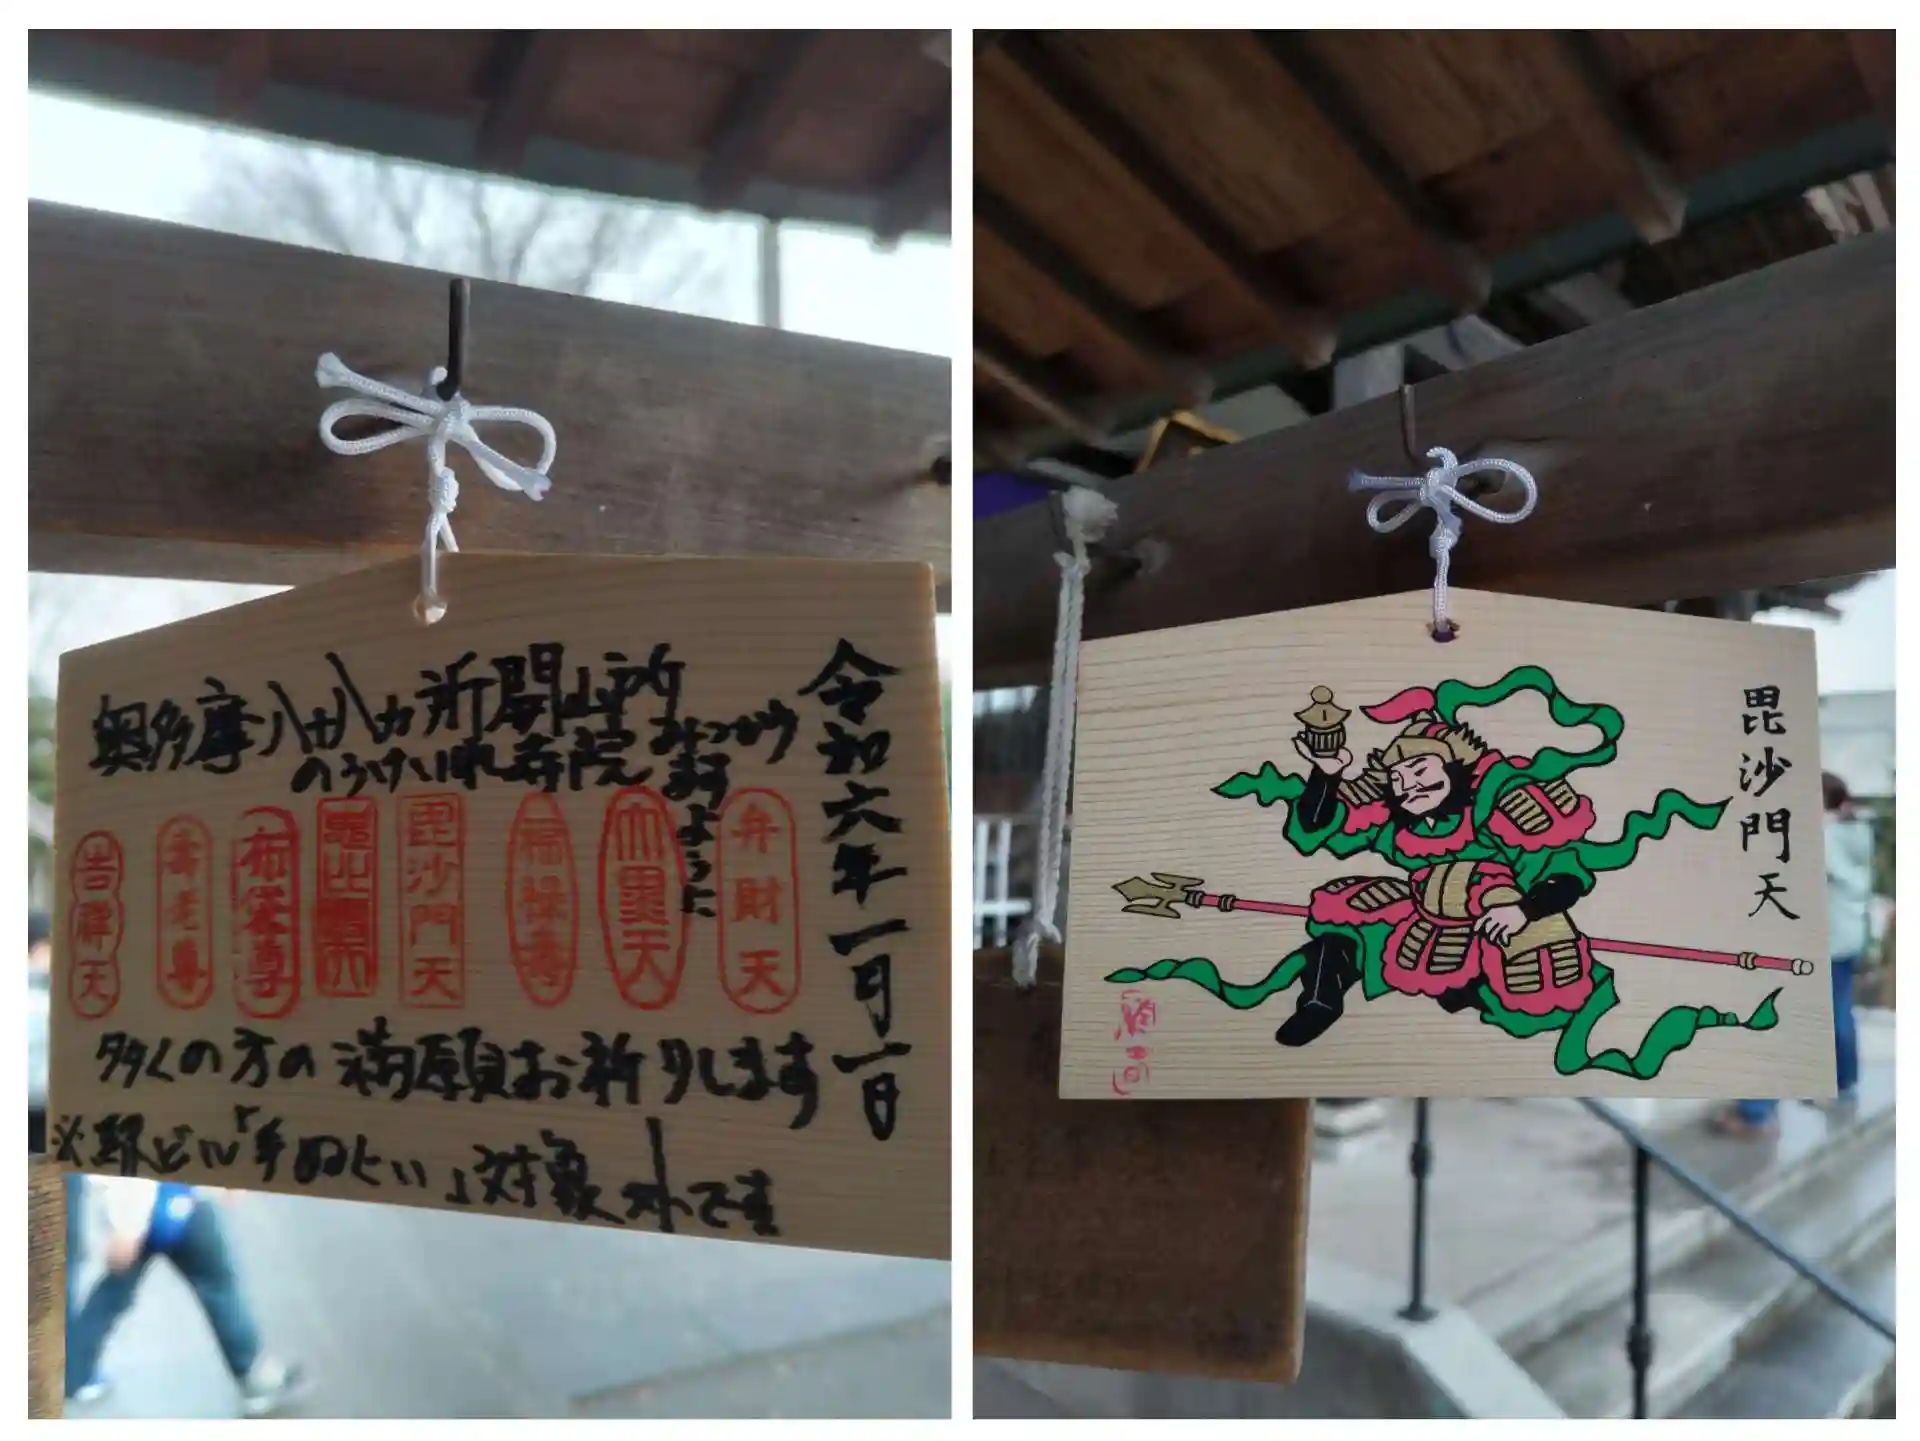 令和六年一月一日
奥多摩八十八カ所開山所
のうけい帳寺院みつかり
ますように
弁財天
大黒天
福禄寿
毘沙門天
恵比寿
布袋尊
壽老尊
吉祥天
多くの方の満願お祈りします
※駅ビル「手ぬぐい」対象外です
毘沙門天